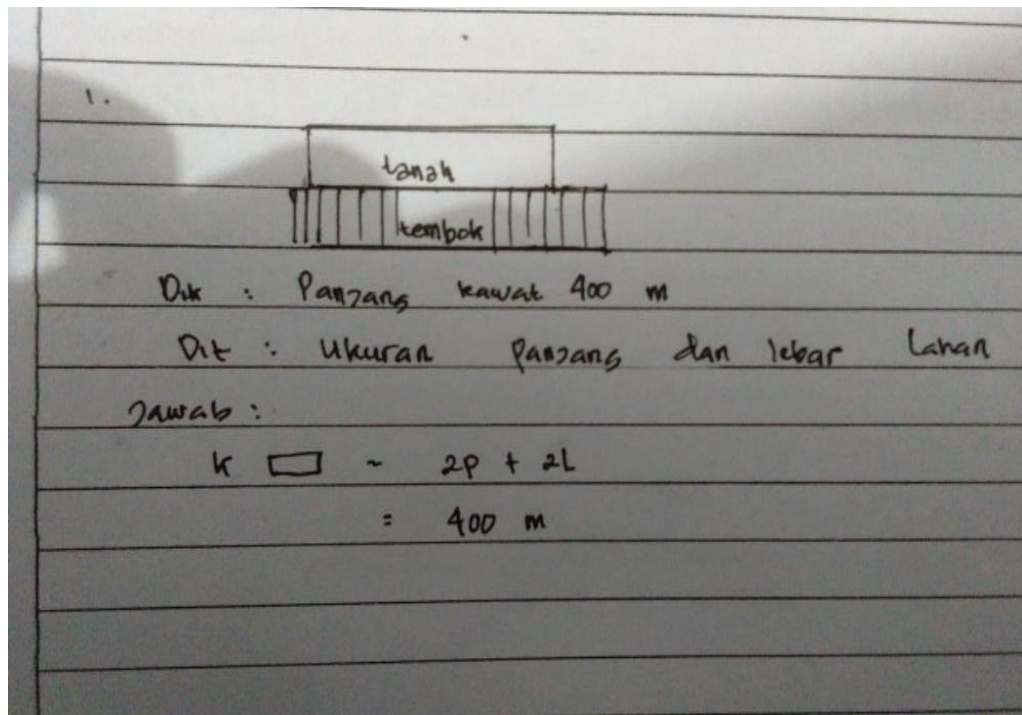 1.
tanah
tembok
Dik : Panjang kawat 400 m
Dit : Ukuran panjang dan lebar Lahan
Jawab :
K ▭ ~ 2p + 2L
= 400 m